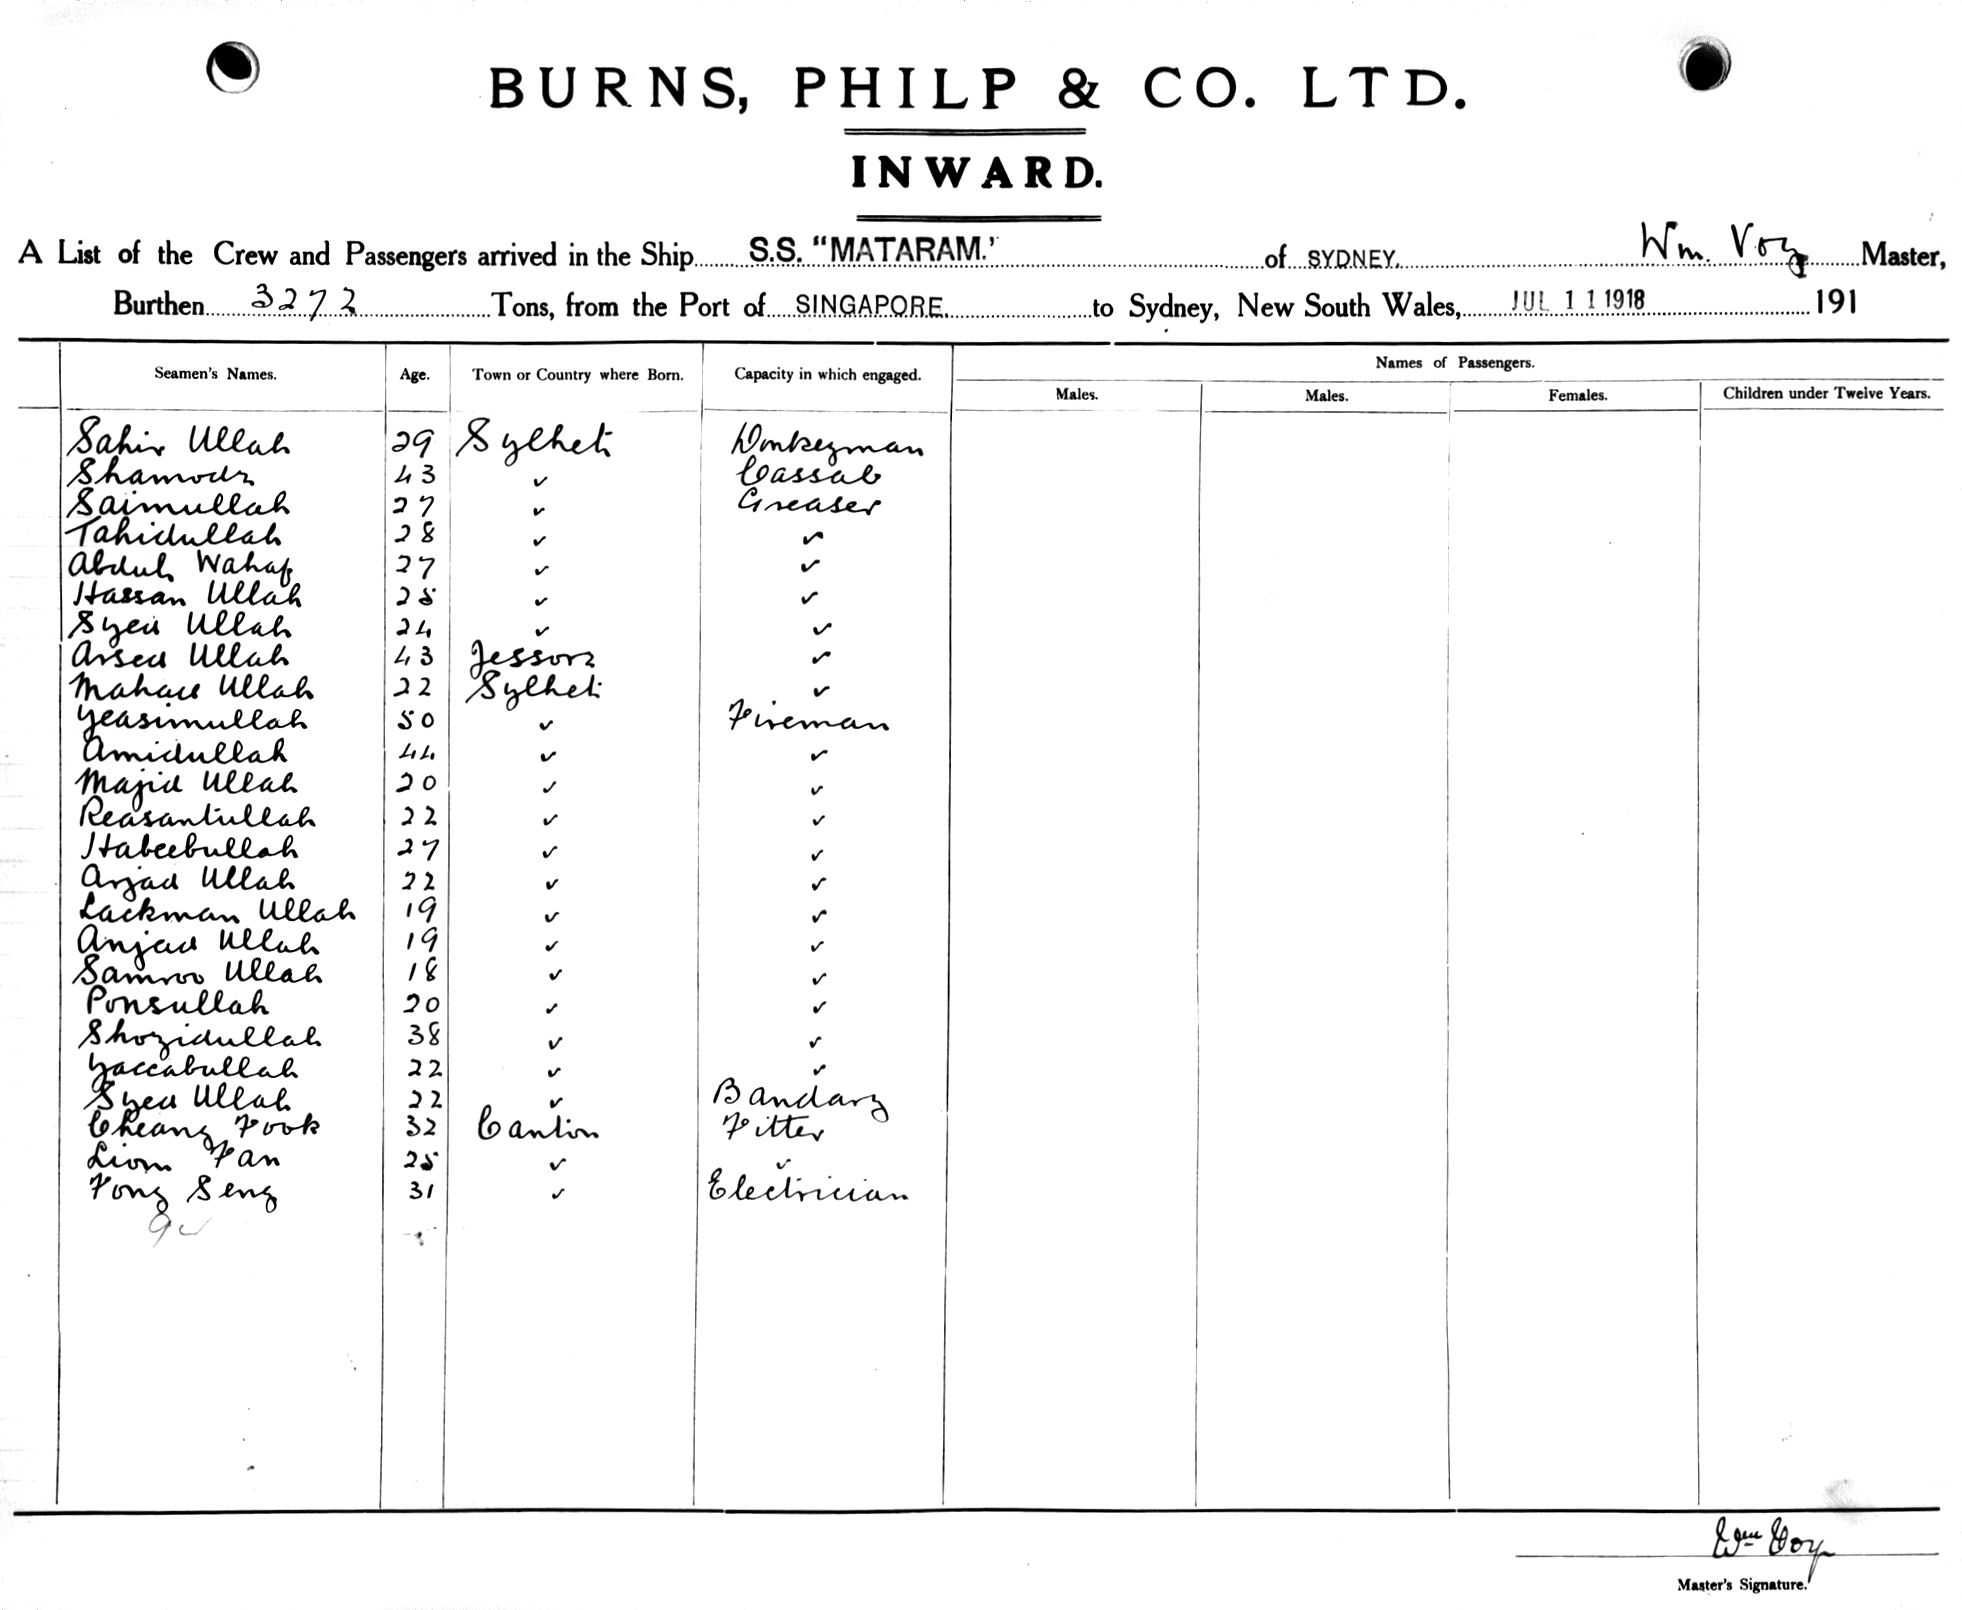 BURNS, PHILP & CO. LTD.
INWARD.
A List of the Crew and Passengers arrived in the Ship S.S. "MATARAM." of SYDNEY. Wm. Voy Master,
Burthen 3272 Tons, from the Port of SINGAPORE. to Sydney, New South Wales, JUL 11 1918 191
Names of Passengers.
Seamen's Names. Age. Town or Country where Born. Capacity in which engaged. Males. Males. Females. Children under Twelve Years.
Sahir Ullah 29 Sylhet Donkeyman
43 ✓ Cassab
Saimullah 27 ✓ Greaser
Tahidullah 28 ✓ ✓
Abdul Wahab 27 ✓ ✓
Hassan Ullah 25 ✓ ✓
Syed Ullah 24 ✓ ✓
Arsed Ullah 43 Jessore ✓
Ullah 22 Sylhet ✓
Yeasimullah 50 ✓ Fireman
Amidullah 44 ✓ ✓
Majid Ullah 20 ✓ ✓
Reasantullah 22 ✓ ✓
Habeebullah 27 ✓ ✓
Arjad Ullah 22 ✓ ✓
Lackman Ullah 19 ✓ ✓
Anjad Ullah 19 ✓ ✓
Samroo Ullah 18 ✓ ✓
Ponsullah 20 ✓ ✓
Shozidullah 38 ✓ ✓
Yaccabullah 22 ✓ ✓
Syed Ullah 22 ✓ Bandary
Cheang Fook 32 Canton Fitter
Liom Fan 25 ✓ ✓
Fong Seng 31 ✓ Electrician
Wm Voy
Master's Signature.